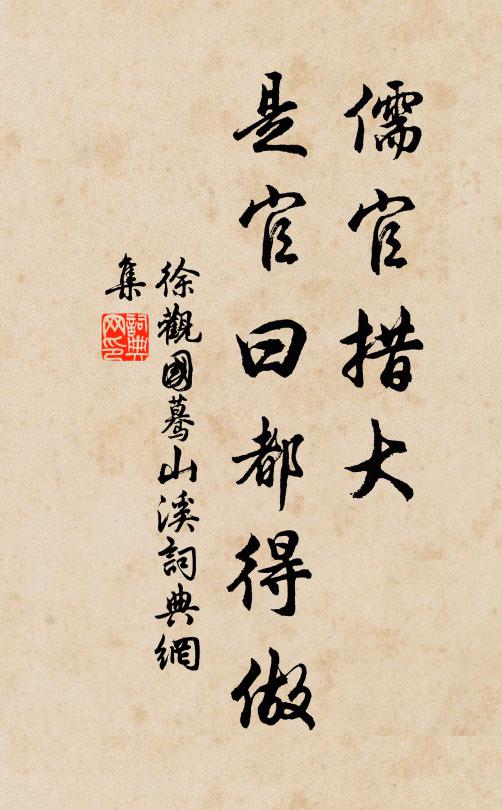 儒官措大
是官曰都得做
徐觀國驀山溪詞典網
集
詞典網印